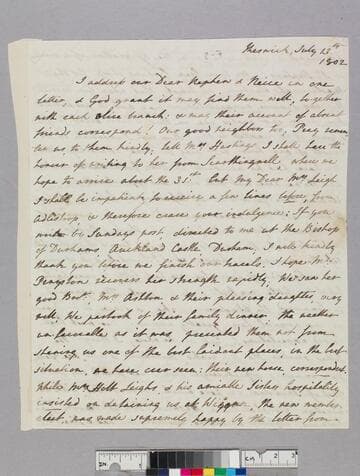 Keswick, July 13th
1802
I address our Dear Nephew & Neice in one
letter, & God grant it may find them well, together
with each olive branch: & may their account of absent
friends correspond! Our good neighbors too, Pray remem
ber us to them kindly, tell Mrs Hastings I shall have the
honor of writing to her from Scarthingwell, where we
hope to arrive about the 31st. But my Dear Mrs Leigh
I shall be impatient to receive a few lines before, from
Adlestrop, & therefore crave your indulgence: If you
write by Sundays post directed to me at the Bishop
of Durhams, Auckland Castle Durham, I will kindly
thank you before we finish our travels. I hope Mrs
Pengston recovers her strength rapidly. We saw her
good Bror. Mrs Ashton, & their pleasing daughter, very
well. We partook of their family dinner. The weather
unfavorable as it was, prevented them not from
shewing us one of the best laid out places, in the best
situation, we have ever seen; their new house corresponds.
While Mrs Holt Leighs & his amiable Sisters hospitality
insisted on detaining us at Wiggan. The new member
elect, was made supremely happy by the letter from